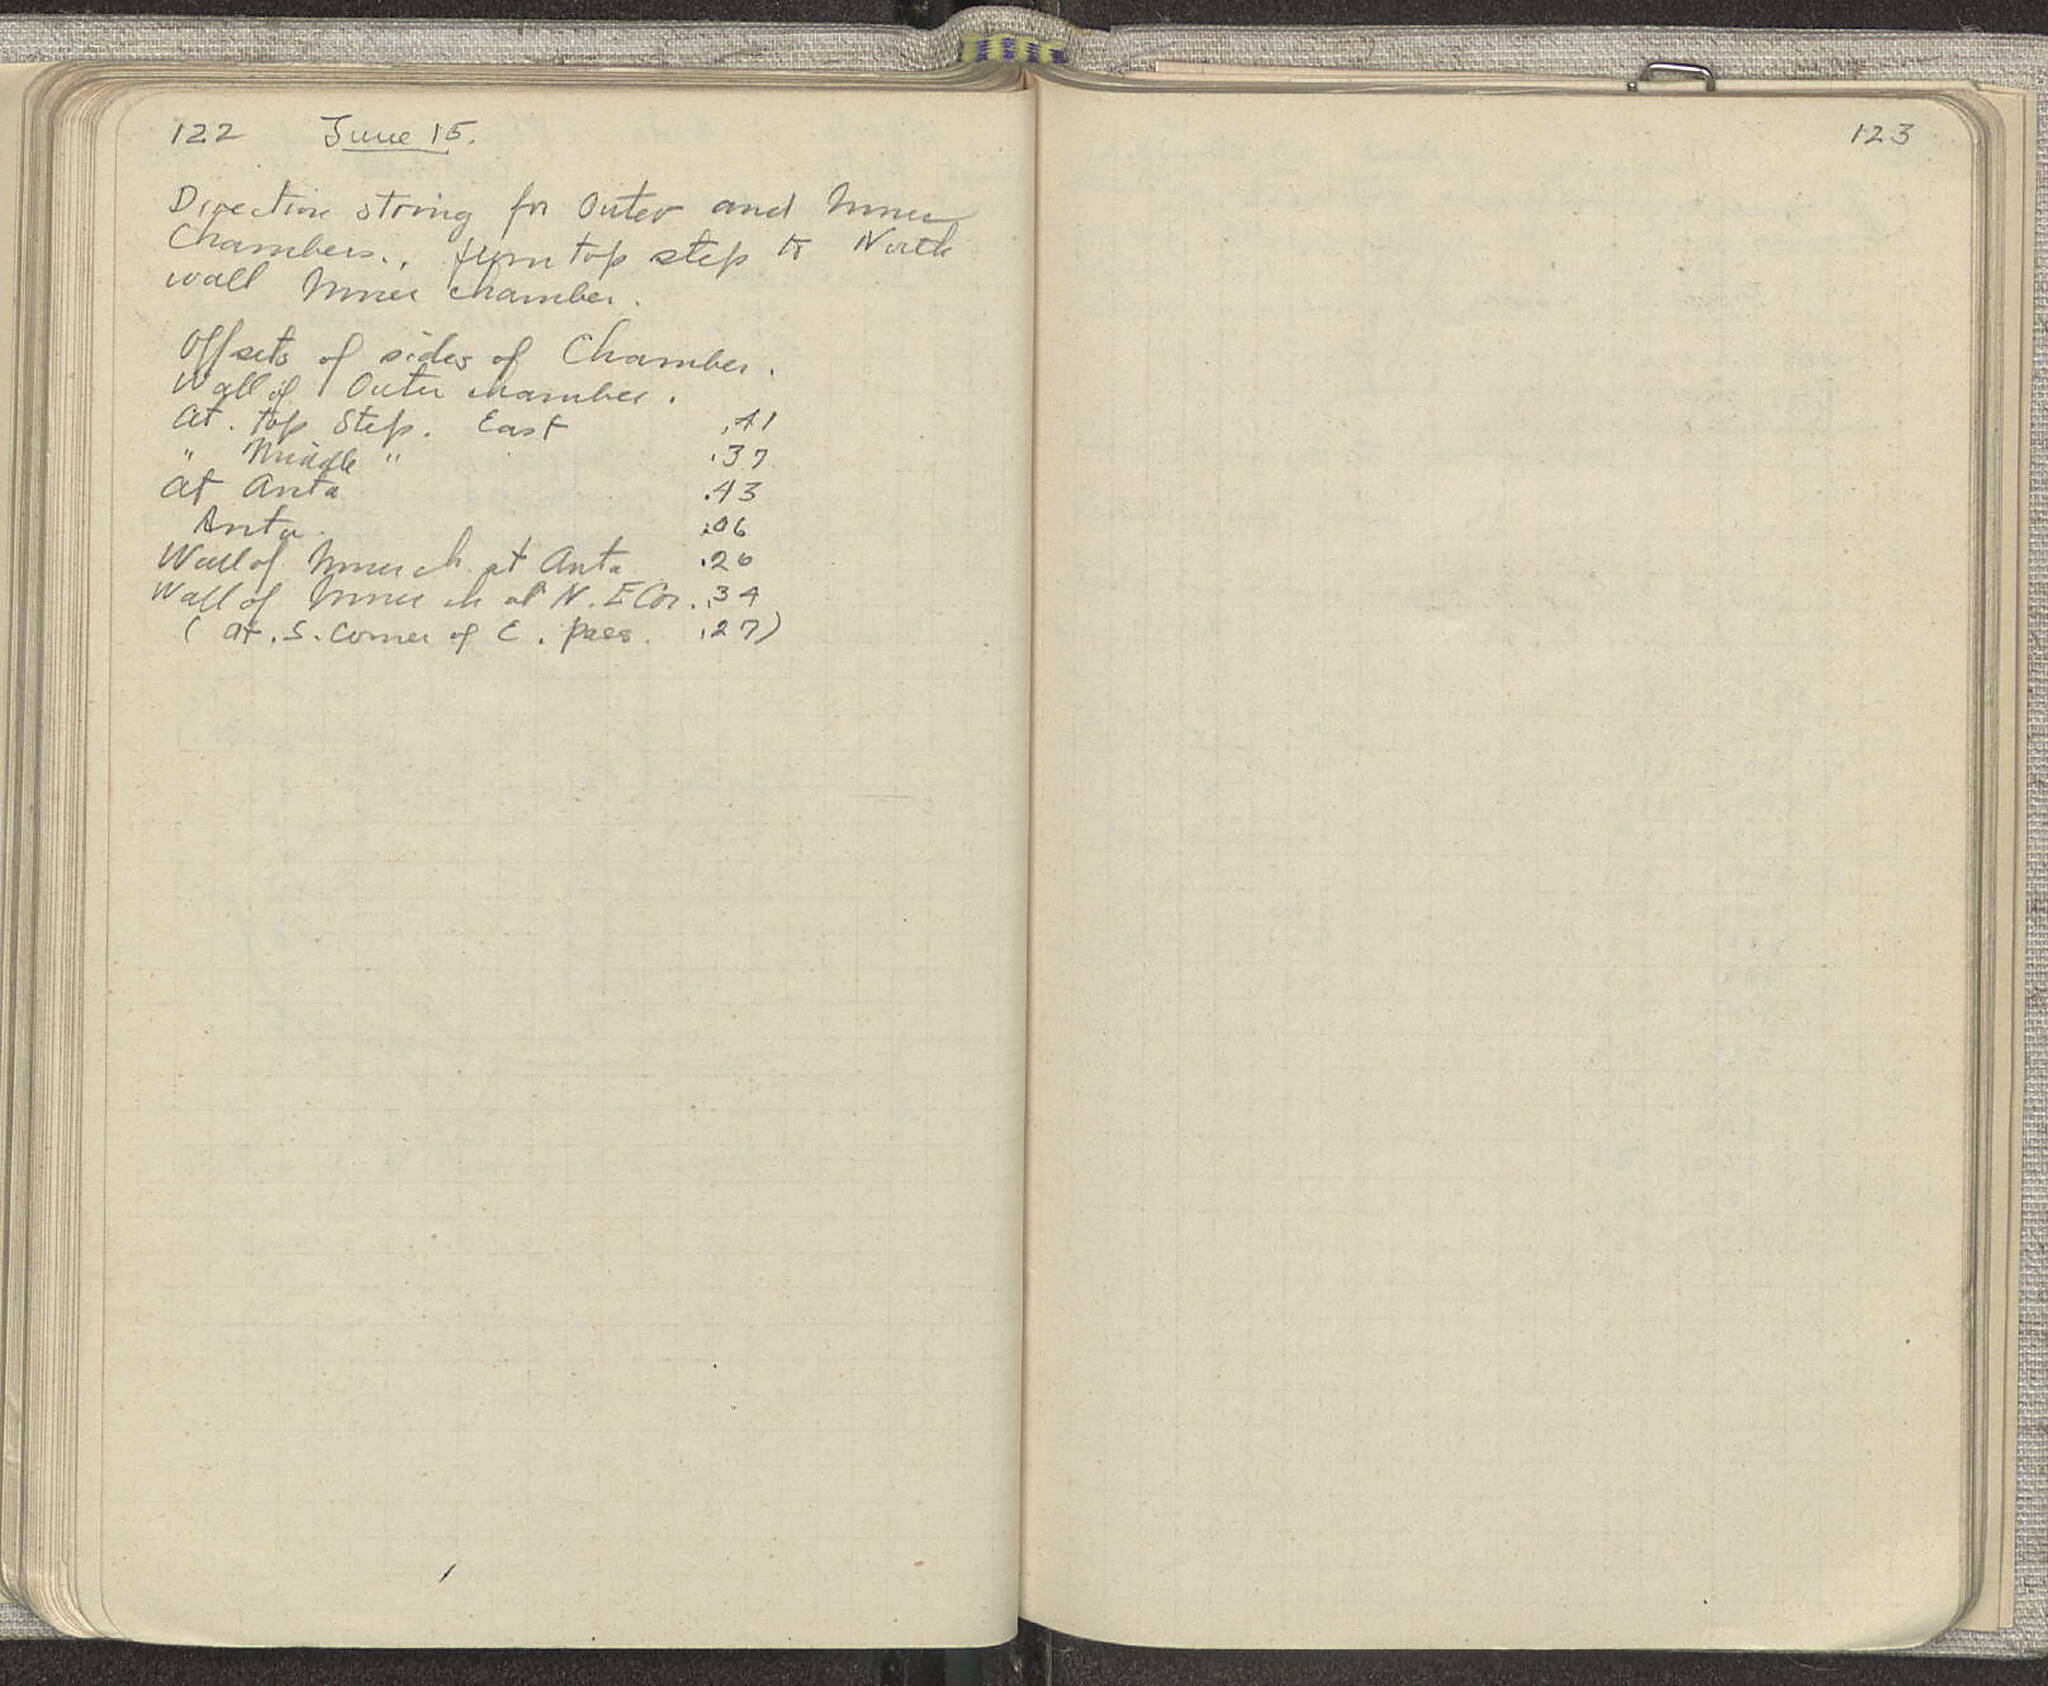 122 June 15.
Direction string for Outer and Inner
Chambers.. from top step to North
wall Inner chamber.
Offsets of sides of Chamber.
Wall of Outer chamber.
At. top Step. East .41
" Middle " .37
At Anta .43
Anta. .06
Wall of Inner ch. at Anta .26
Wall of Inner ch at N. E Cor. .34
( at. S. Corner of E. pass. .27)
123